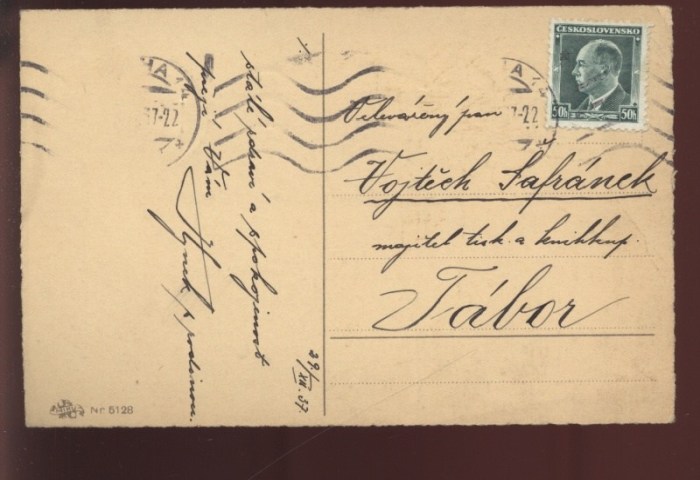 stálé zdraví a spokojenost
přejí Vám
Hynek s rodinou.
29/XII.37
Nr 5128
ČESKOSLOVENSKO
50h 50h
37-22
7-22
Velevážený pan
Vojtěch Šafránek
majitel tisk. a knihkup.
Tábor